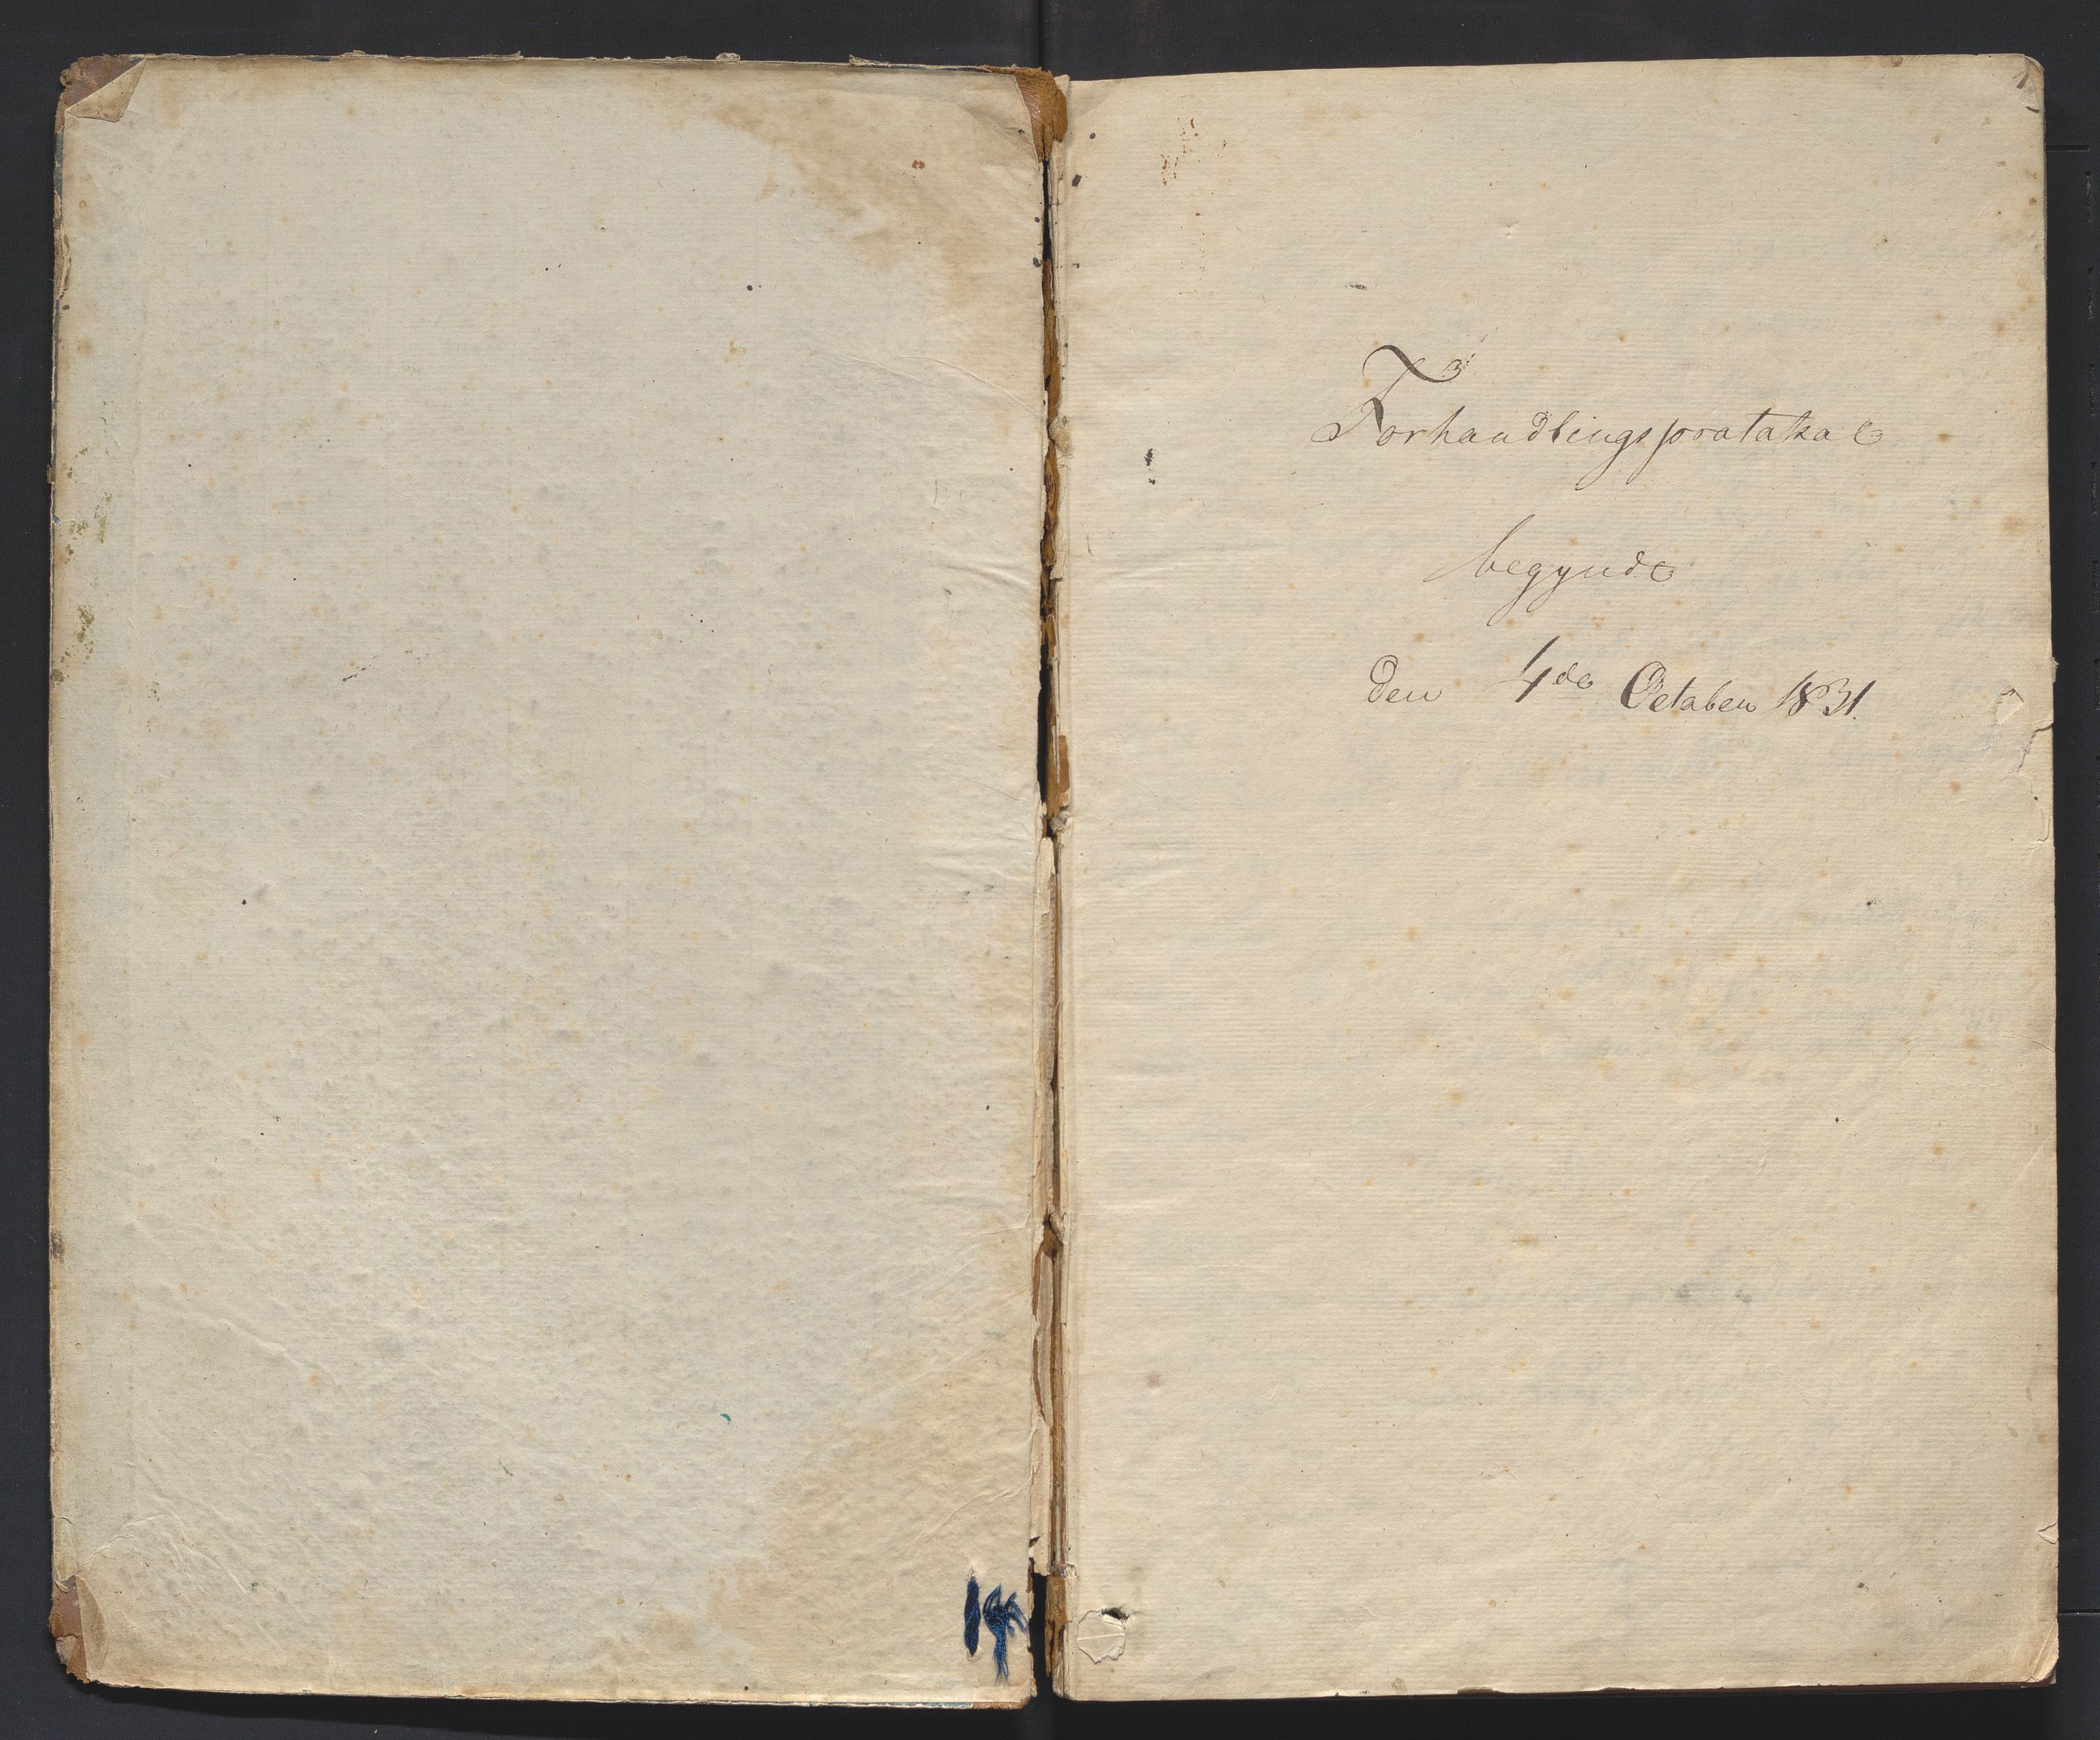 Forhandlingsprotokol
begyndt
den 4de October 1831.